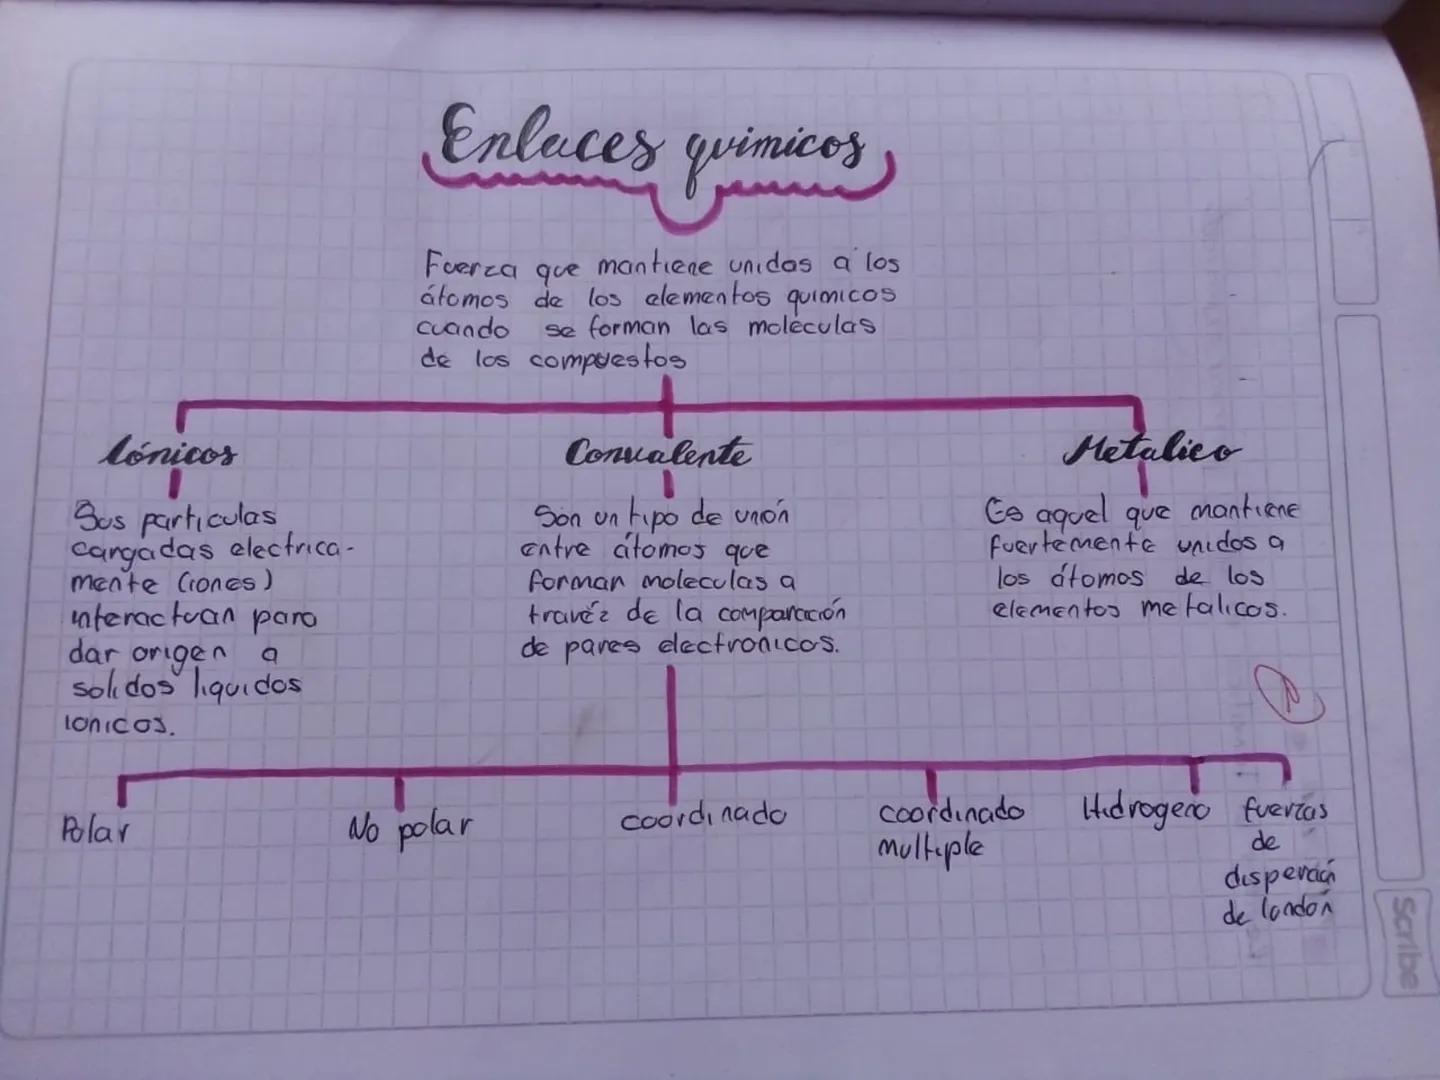 Enlaces quimicos
Fuerza que mantiene unidos a los
átomos de los elementos quimicos
cuando se forman las moléculas
de los compuestos
Iónicos
Sus particulas
cargadas electrica-
mente (iones)
interactuan para
dar origen a
solidos liquidos
ionicos.
Convalente
Són un tipo de unión
entre átomos que
forman moleculas a
travéz de la comparación
de pares electronicos.
Metalico
Es aquel que mantiene
fuertemente unidos a
los átomos de los
elementos metalicos.
Polar
No polar
coordinado
coordinado
multiple
Hidrogeno
fuerzas
de
disperción
de london
Scribe